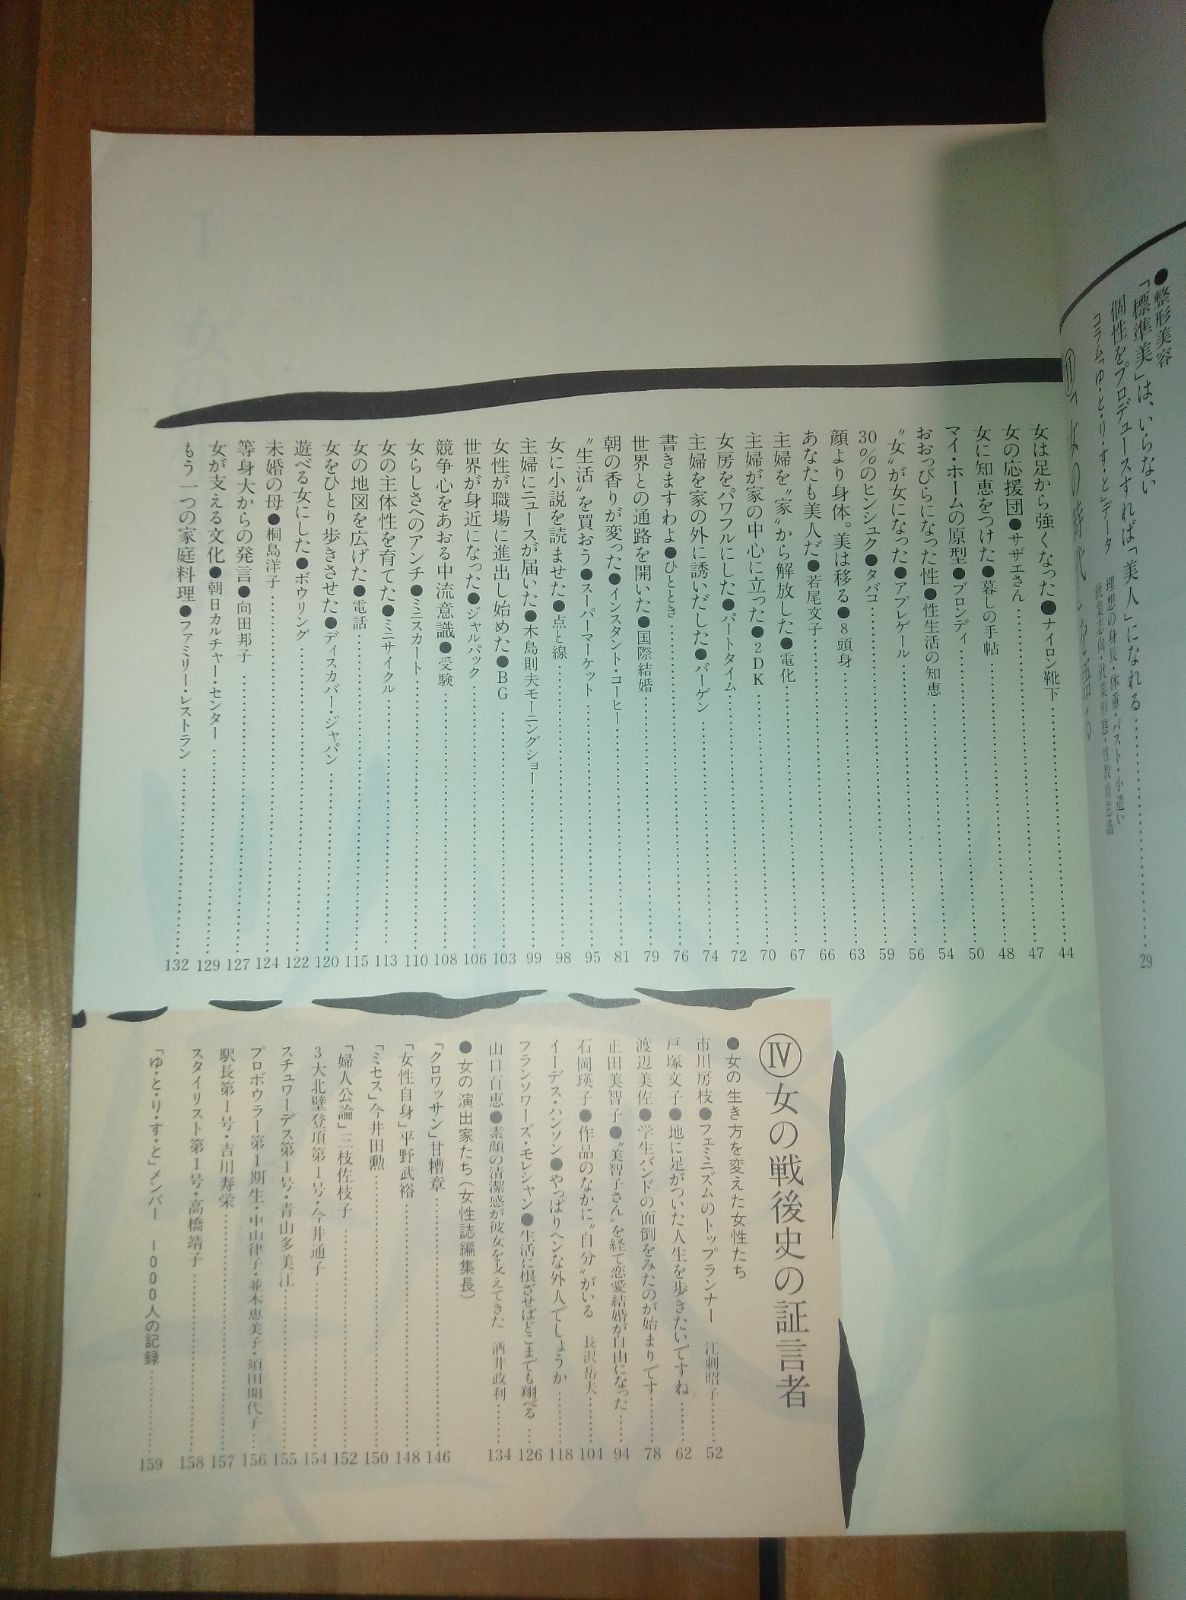 ●整形美容
「標準美」は、いらない
個性をプロデュースすれば「美人」になれる……29
コラム「ゆ・と・り・す・と」データ
理想の身長・体重・バスト・小遣い
女は足から強くなった●ナイロン靴下……44
女の応援団●サザエさん……47
女に知恵をつけた●暮しの手帖……48
マイ・ホームの原型●ブロンディ……50
おおっぴらになった性●性生活の知恵……54
〝女〟が女になった●アプレゲール……56
30%のヒンシュク●タバコ……59
顔より身体。美は移る●8頭身……63
あなたも美人だ●若尾文子……66
主婦を〝家〟から解放した●電化……67
主婦が家の中心に立った●2DK……70
女房をパワフルにした●パートタイム……72
主婦を家の外に誘いだした●バーゲン……74
書きますわよ●ひととき……76
世界との通路を開いた●国際結婚……79
朝の香りが変った●インスタント・コーヒー……81
〝生活〟を買おう●スーパーマーケット……95
女に小説を読ませた●点と線……98
主婦にニュースが届いた●木島則夫モーニングショー……99
女性が職場に進出し始めた●BG……103
世界が身近になった●ジャルパック……106
競争心をあおる中流意識●受験……108
女らしさへのアンチ●ミニスカート……110
女の主体性を育てた●ミニサイクル……113
女の地図を広げた●電話……115
女をひとり歩きさせた●ディスカバー・ジャパン……120
遊べる女にした●ボウリング……122
未婚の母●桐島洋子……124
等身大からの発言●向田邦子……127
女が支える文化●朝日カルチャー・センター……129
もう一つの家庭料理●ファミリー・レストラン……132
Ⅳ女の戦後史の証言者
●女の生き方を変えた女性たち
市川房枝●フェミニズムのトップランナー 江刺昭子……52
戸塚文子●地に足がついた人生を歩きたいですね……62
渡辺美佐●学生バンドの面倒をみたのが始まりです……78
正田美智子●〝美智子さん〟を経て恋愛結婚が自由になった……94
石岡瑛子●作品のなかに〝自分〟がいる 長沢岳夫……104
イーデス・ハンソン●やっぱりヘンな外人でしょうか……118
フランソワーズ・モレシャン●生活に根ざせばどこまでも翔べる……126
山口百恵●素顔の清潔感が彼女を支えてきた 酒井政利……134
●女の演出家たち(女性誌編集長)
「クロワッサン」甘糟章……146
「女性自身」平野武裕……148
「ミセス」今井田勲……150
「婦人公論」三枝佐枝子……152
3大北壁登頂第1号・今井通子……154
スチュワーデス第1号・青山多美江……155
プロボウラー第1期生・中山律子・並木恵美子・須田開代子……156
駅長第1号・吉川寿栄……157
スタイリスト第1号・高橋靖子……158
「ゆ・と・り・す・と」メンバー 1000人の記録……159